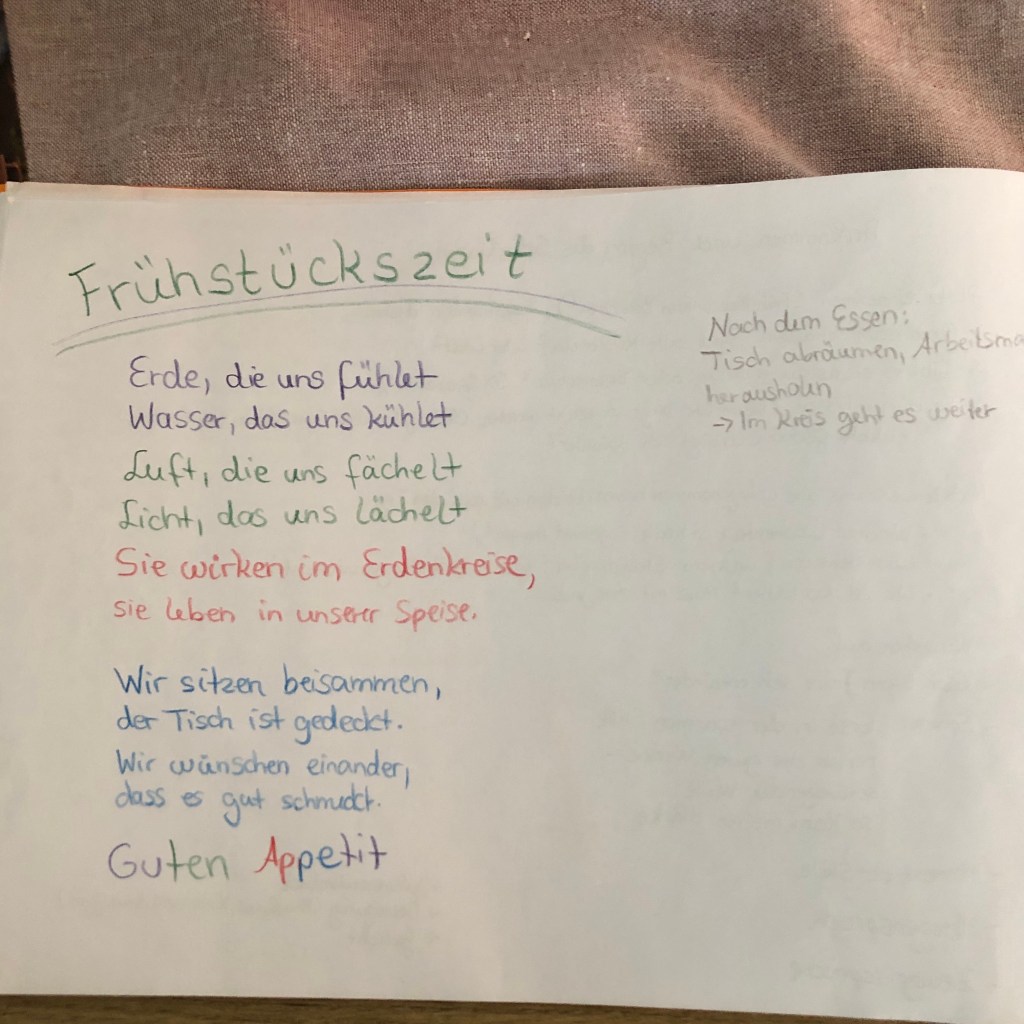 Frühstückszeit
Erde, die uns fühlet
Wasser, das uns kühlet
Luft, die uns fächelt
Licht, das uns lächelt
Sie wirken im Erdenkreise,
sie leben in unserer Speise.
Wir sitzen beisammen,
der Tisch ist gedeckt.
Wir wünschen einander,
dass es gut schmeckt.
Guten Appetit
Nach dem Essen:
Tisch abräumen, Arbeitsma
herausholen
-> Im Kreis geht es weiter